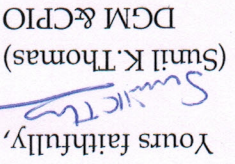 Yours faithfully,
Sunil K Tho
(Sunil K.Thomas)
DGM & CPIO